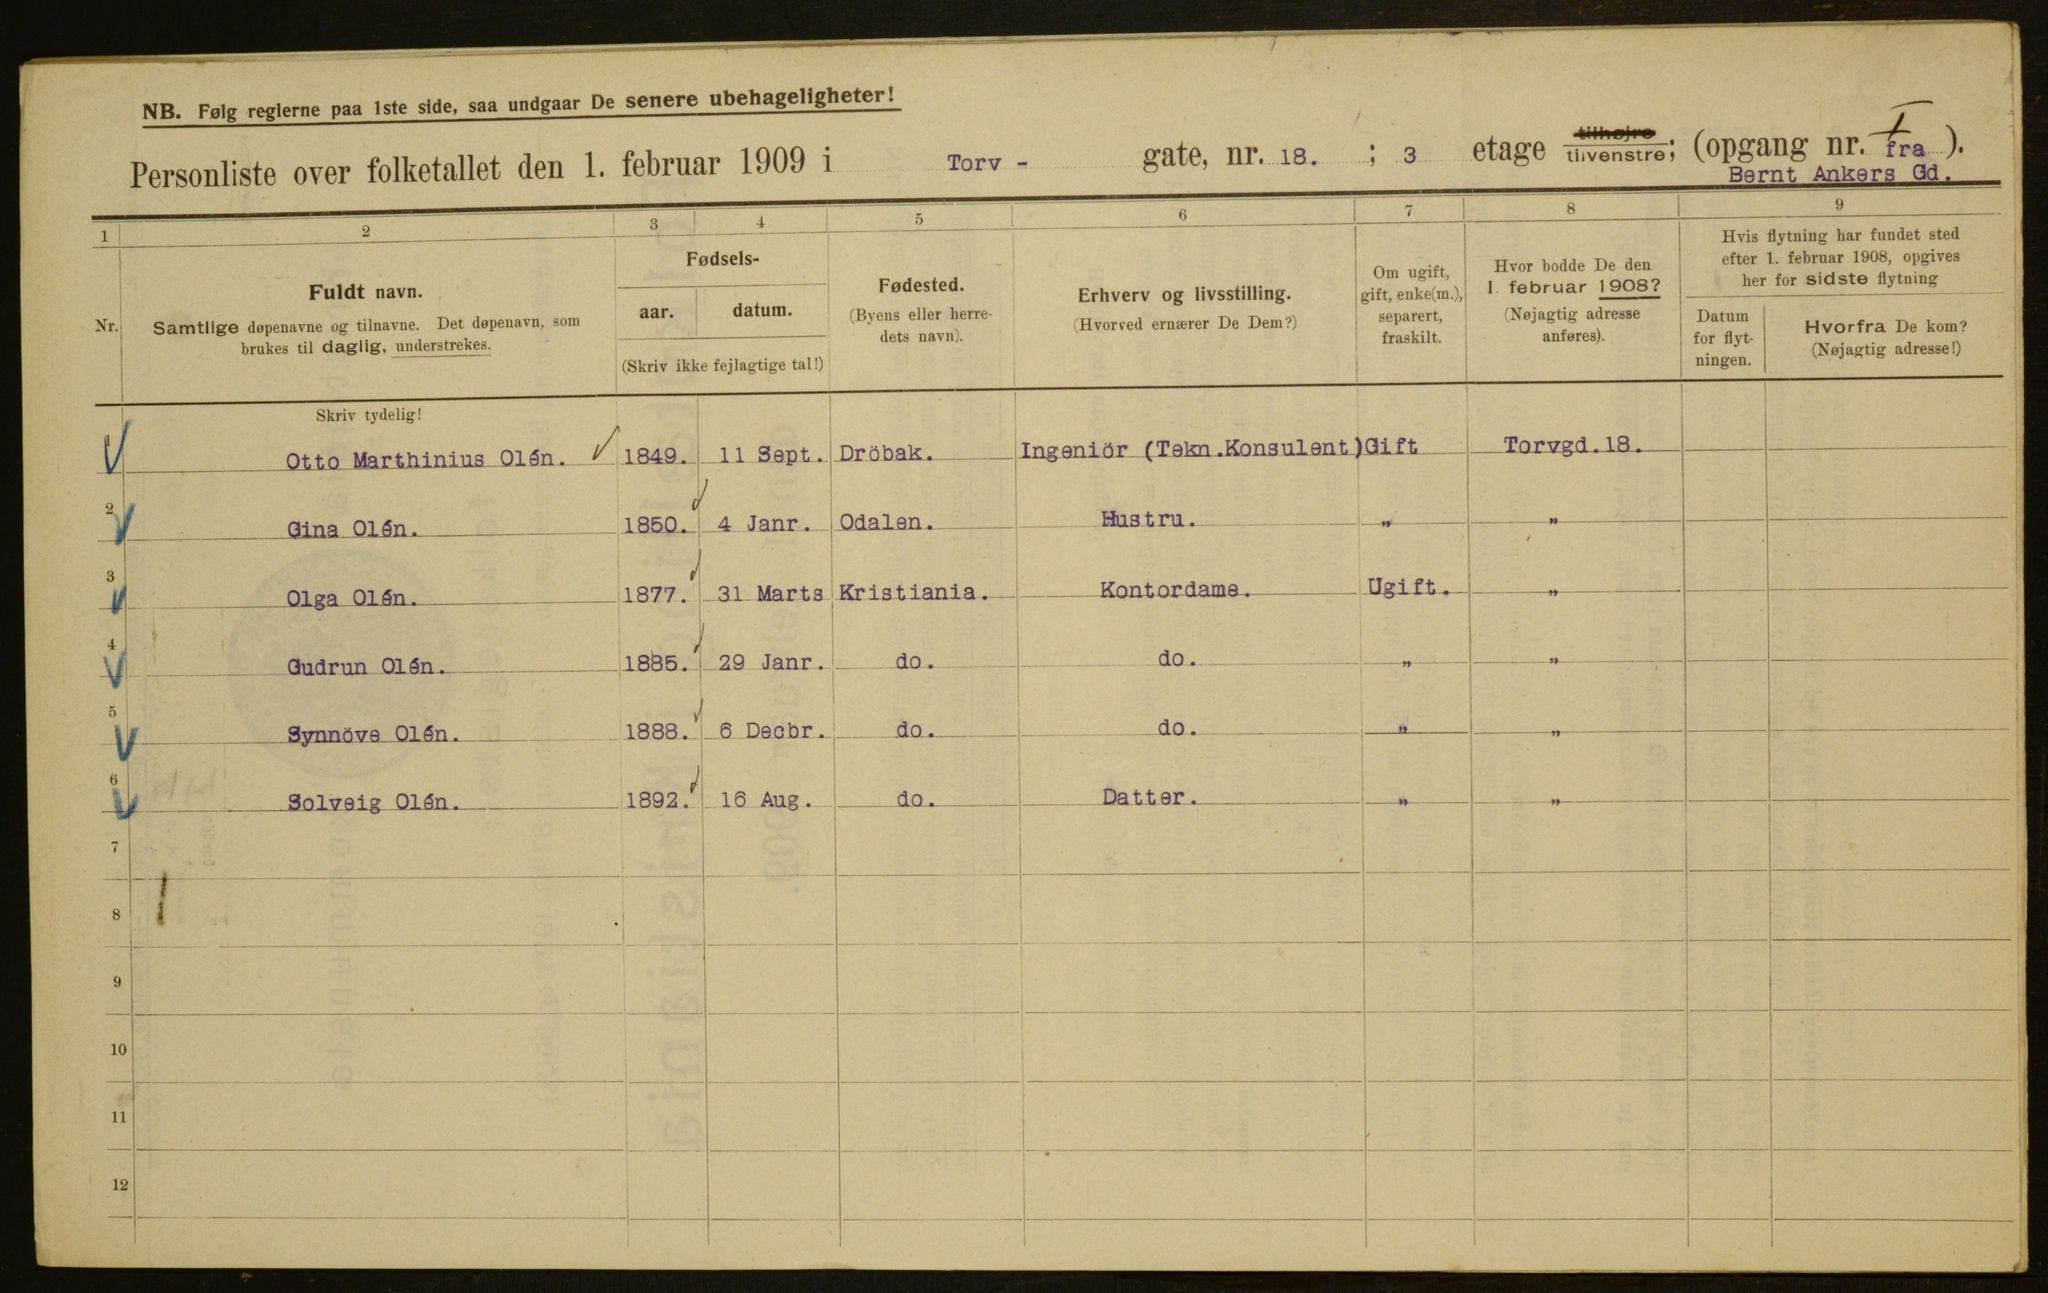 NB. Følg reglerne paa 1ste side, saa undgaar De senere ubehageligheter!
Personliste over folketallet den 1. februar 1909 i Torv - gate, nr. 18. ; 3 etage tilhøjre tilvenstre; (opgang nr. I fra ).
Bernt Ankers Gd.
1 2 3 4 5 6 7 8 9
Nr.
Fuldt navn.
Samtlige døpenavne og tilnavne. Det døpenavn, som
brukes til daglig, understrekes.
Fødsels-
aar. datum.
(Skriv ikke fejlagtige tal!)
Fødested.
(Byens eller herre-
dets navn).
Erhverv og livsstilling.
(Hvorved ernærer De Dem?)
Om ugift,
gift, enke(m.),
separert,
fraskilt.
Hvor bodde De den
1. februar 1908?
(Nøjagtig adresse
anføres).
Hvis flytning har fundet sted
efter 1. februar 1908, opgives
her for sidste flytning
Datum
for flyt-
ningen.
Hvorfra De kom?
(Nøjagtig adresse!)
Skriv tydelig!
1 Otto Marthinius Olén. 1849. 11 Sept. Dröbak. Ingeniör (Tekn.Konsulent) Gift Torvgd.18.
2 Gina Olén. 1850. 4 Janr. Odalen. Hustru. " "
3 Olga Olén. 1877. 31 Marts Kristiania. Kontordame. Ugift. "
4 Gudrun Olén. 1885. 29 Janr. do. do. " "
5 Synnöve Olén. 1888. 6 Decbr. do. do. " "
6 Solveig Olén. 1892. 16 Aug. do. Datter. " "
7
8
9
10
11
12